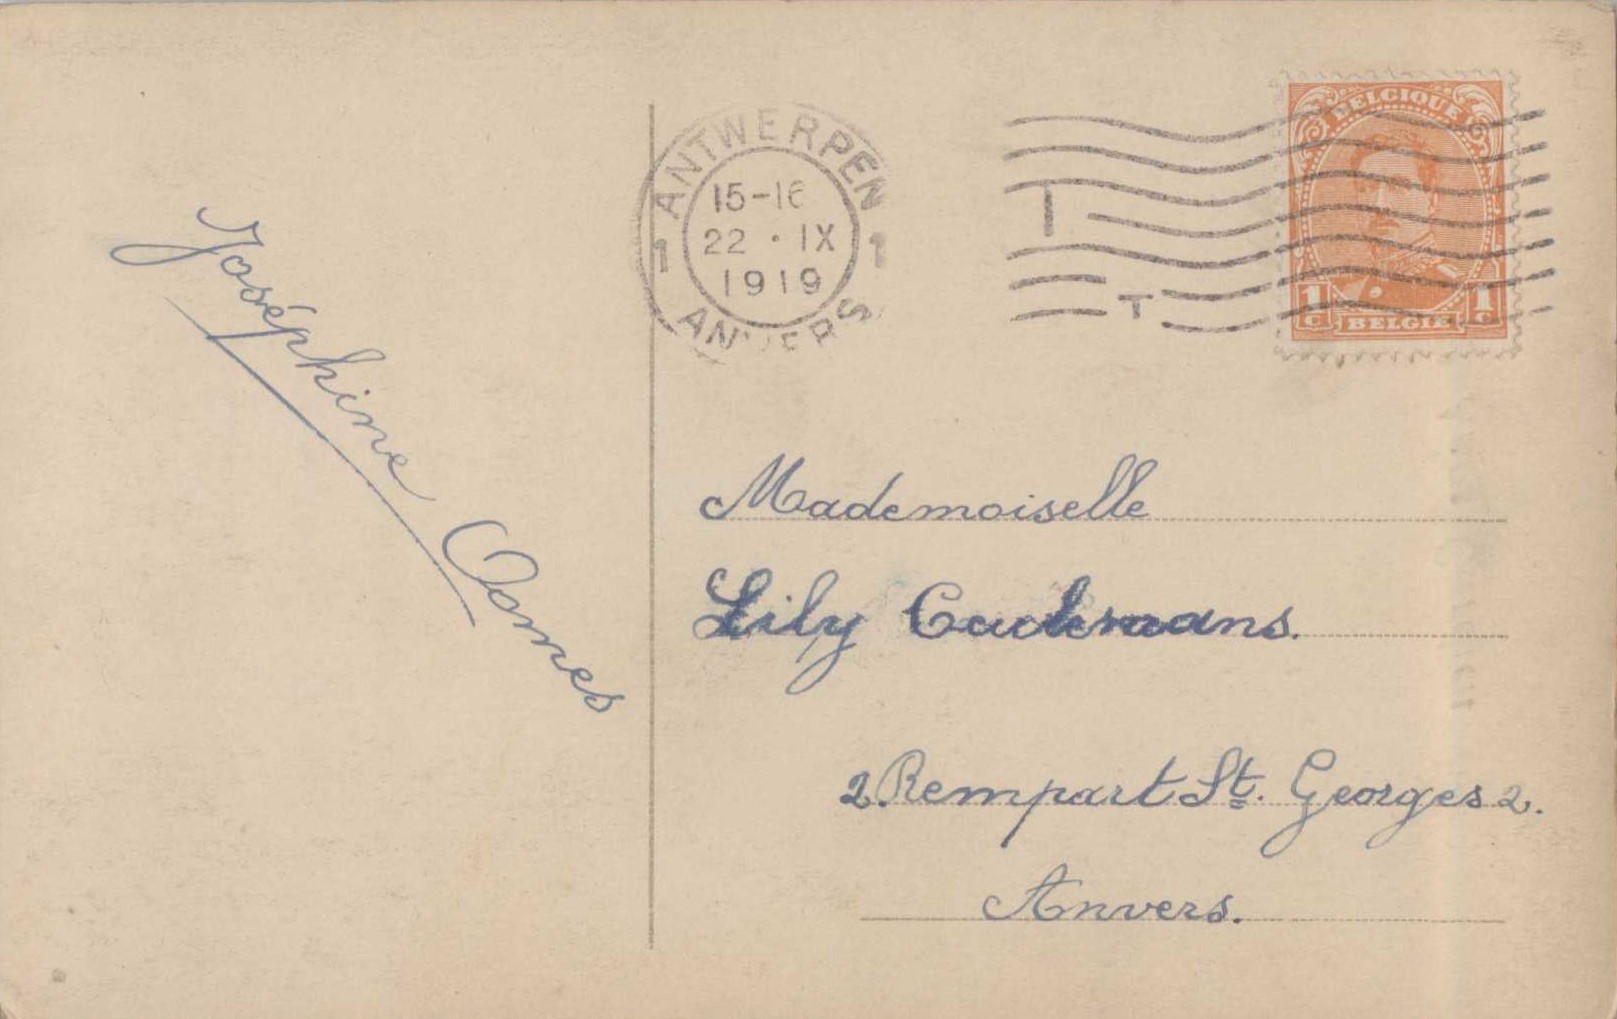 Joséphine Oomes
ANTWERPEN
15-16
22 · IX
1919
1 1
ANVERS
T
BELGIQUE
1c 1c
BELGIË
Mademoiselle
Lily
2. Rempart St. Georges 2.
Anvers.